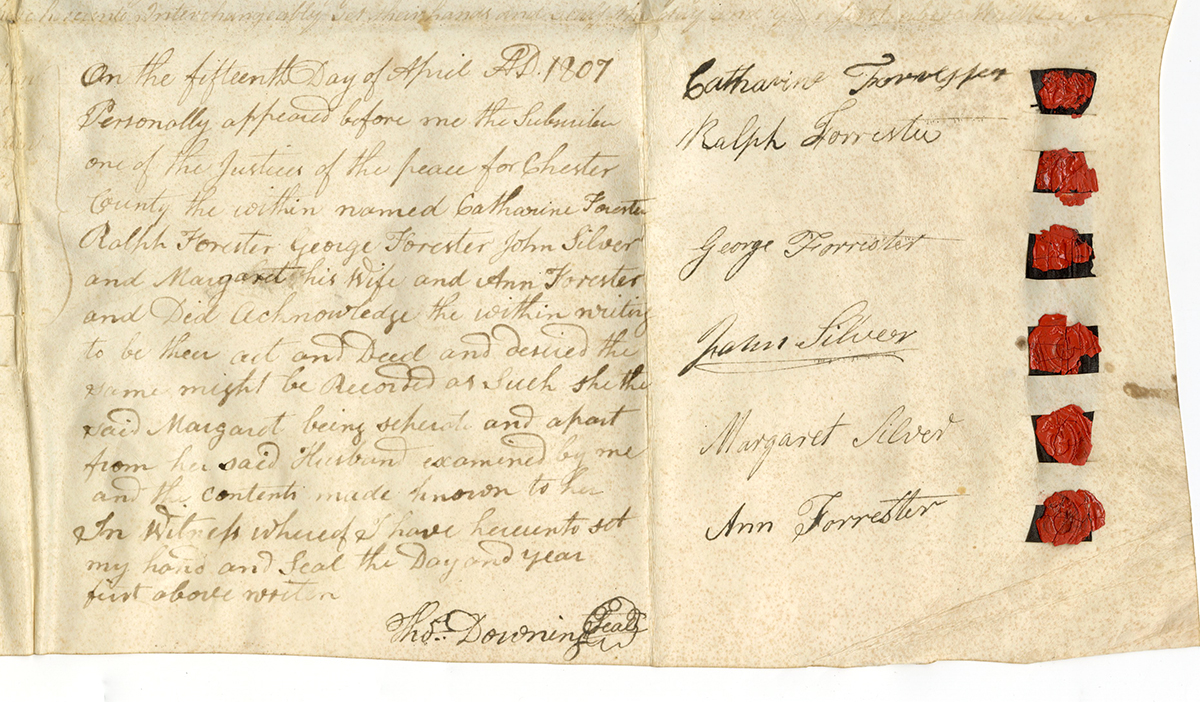 hereunto Interchangeably Set their hands and Seals the day and year first above Written
On the fifteenth Day of April A.D. 1807
Personally appeared before me the Subscriber
one of the Justices of the peace for Chester
County the within named Catharine Forester
Ralph Forester George Forester John Silver
and Margaret his Wife and Ann Forester
and Did Acknowledge the within writing
to be their act and Deed and desired the
same might be Recorded as Such she the
said Margaret being seperate and apart
from her said Husband examined by me
and the Contents made known to her
In Witness whereof I have hereunto set
my hand and Seal the Day and year
first above writen
Thos. Downing Seal
Catharine
Ralph Forrester
George Forrister
John Silveer
Margaret Silver
Ann Forrester